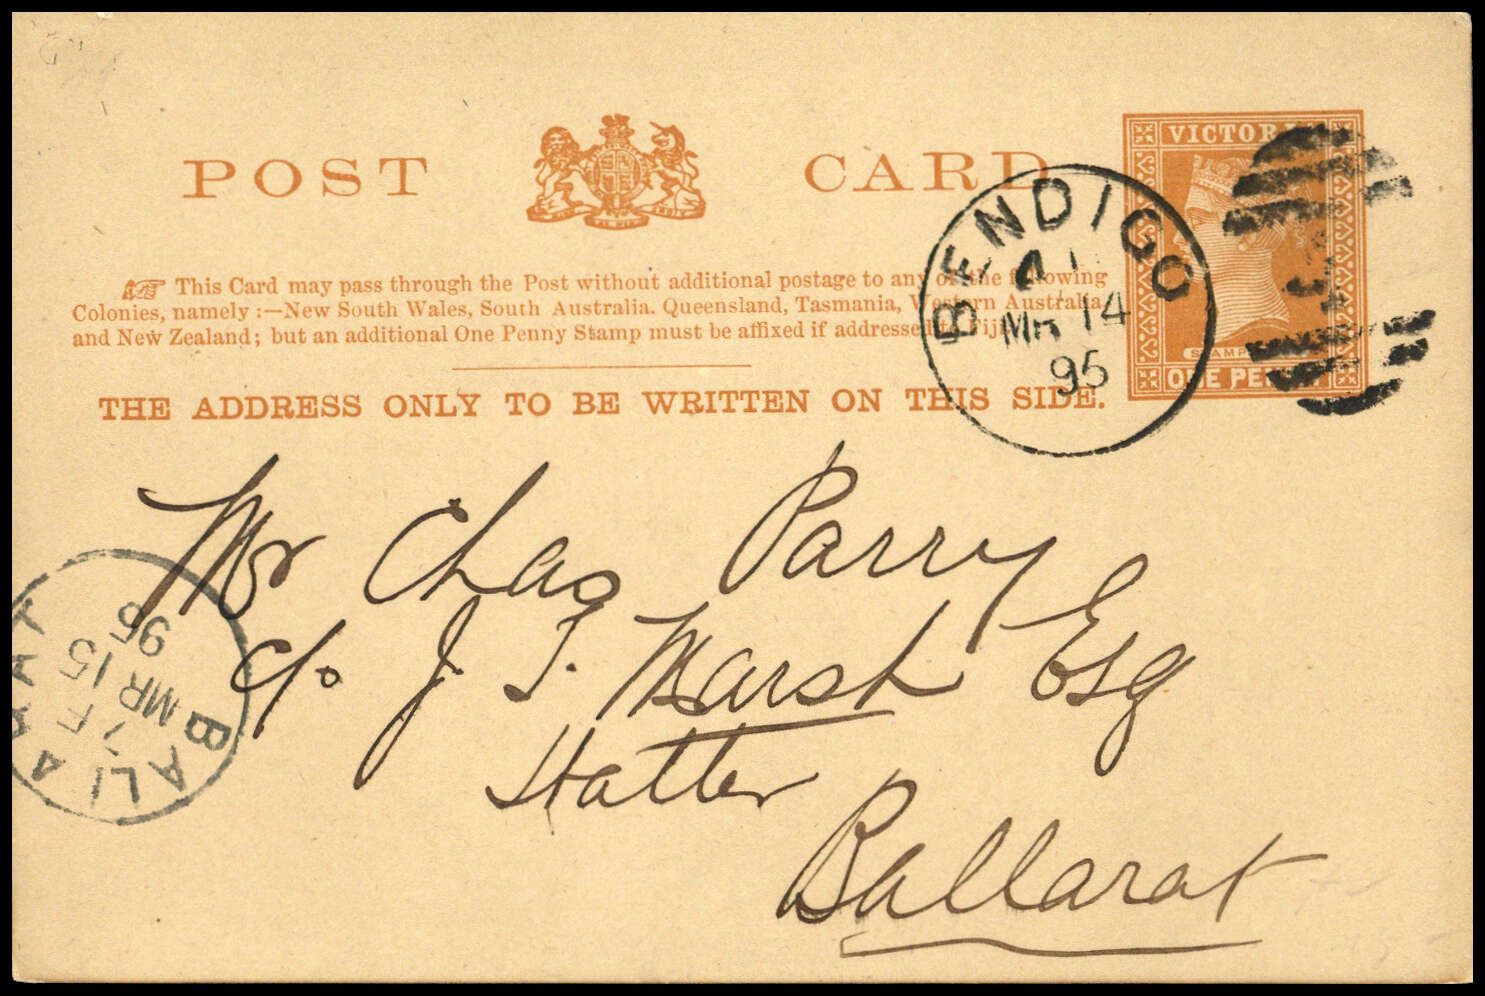 POST CARD
VICTORIA
This Card may pass through the Post without additional postage to any of the following
Colonies, namely :—New South Wales, South Australia. Queensland, Tasmania, Western Australia
and New Zealand; but an additional One Penny Stamp must be affixed if addressed to Fiji
THE ADDRESS ONLY TO BE WRITTEN ON THIS SIDE.
STAMP
ONE PENNY
BENDIGO
MR 14
95
Mr Chas Parry
c/o J. T. Marsh Esq
Hatter
Ballarat
BALLARAT
MR 15
95